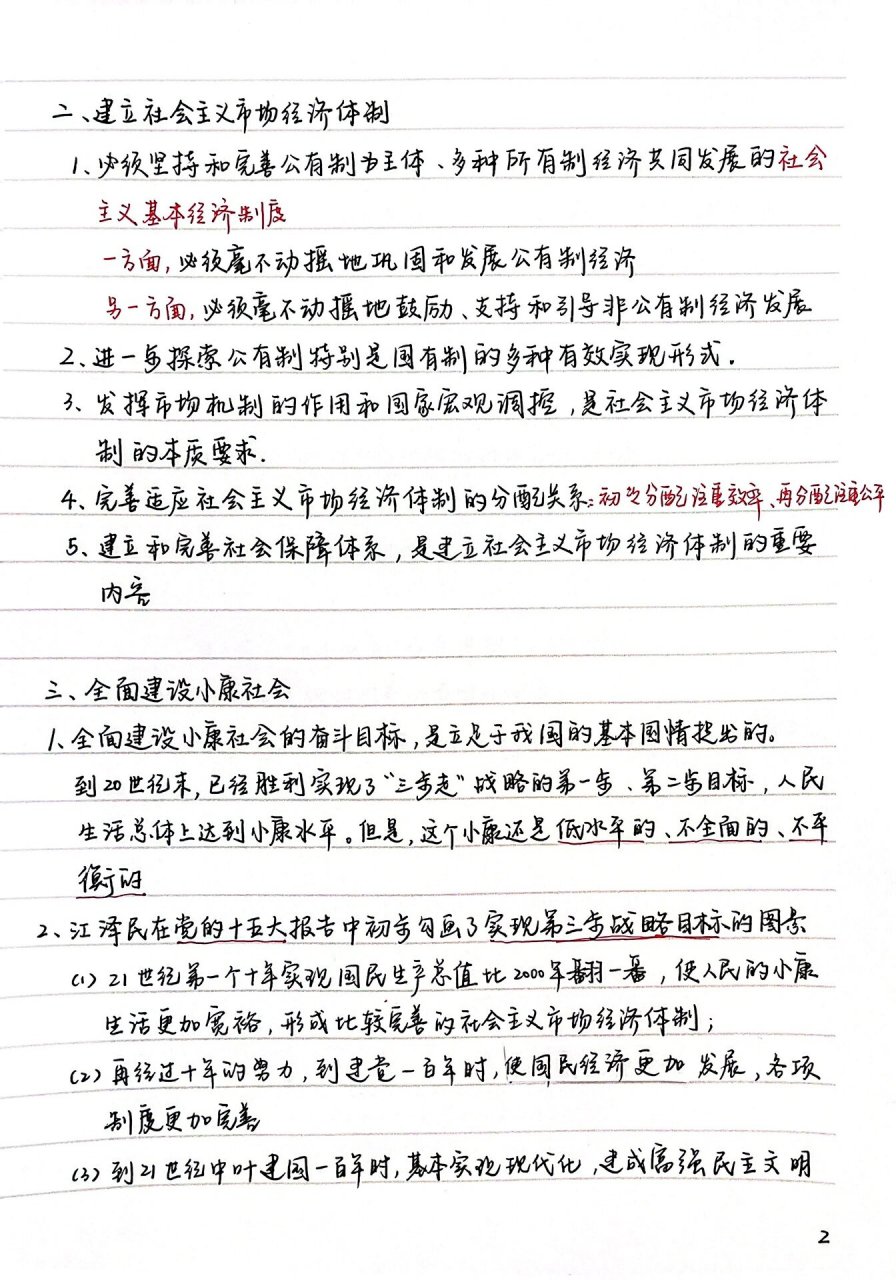 二、建立社会主义市场经济体制
1、必须坚持和完善公有制为主体、多种所有制经济共同发展的社会
主义基本经济制度
一方面,必须毫不动摇地巩固和发展公有制经济
另一方面,必须毫不动摇地鼓励、支持和引导非公有制经济发展
2、进一步探索公有制特别是国有制的多种有效实现形式.
3、发挥市场机制的作用和国家宏观调控,是社会主义市场经济体
制的本质要求.
4、完善适应社会主义市场经济体制的分配关系:初次分配注重效率、再分配注重公平
5、建立和完善社会保障体系,是建立社会主义市场经济体制的重要
内容
三、全面建设小康社会
1、全面建设小康社会的奋斗目标,是立足于我国的基本国情提出的。
到20世纪末,已经胜利实现了“三步走”战略的第一步、第二步目标,人民
生活总体上达到小康水平。但是,这个小康还是低水平的、不全面的、不平
衡的
2、江泽民在党的十五大报告中初步勾画了实现第三步战略目标的图景
(1)21世纪第一个十年实现国民生产总值比2000年翻一番,使人民的小康
生活更加宽裕,形成比较完善的社会主义市场经济体制;
(2)再经过十年的努力,到建党一百年时,使国民经济更加发展,各项
制度更加完善
(3)到21世纪中叶建国一百年时,基本实现现代化,建成富强民主文明
2